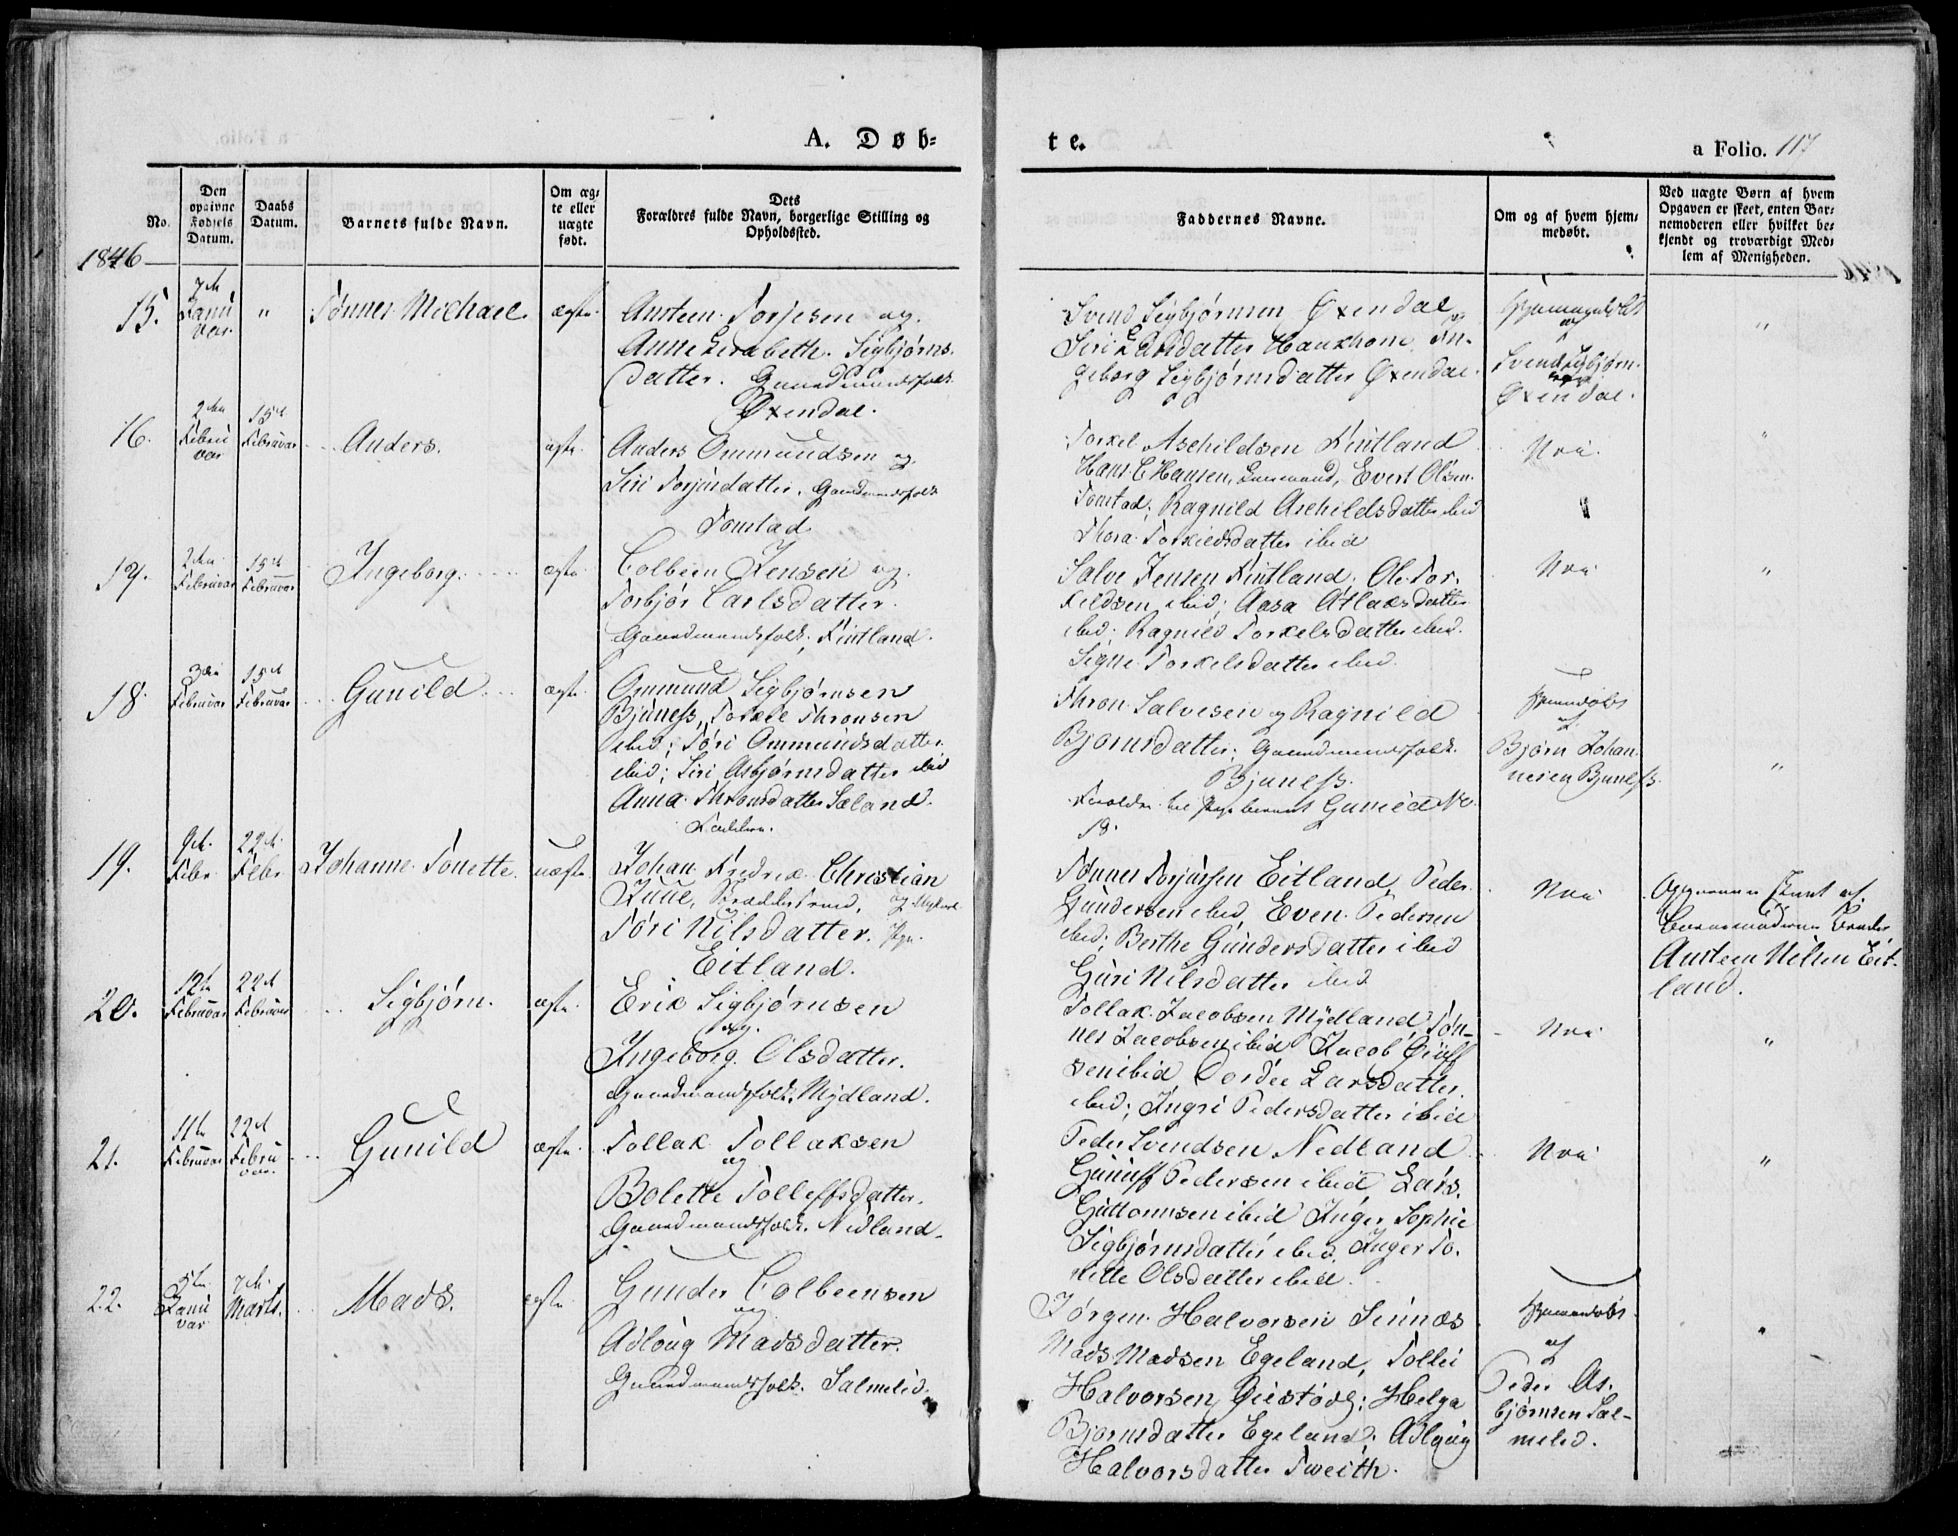 A. Døb=
te.
a Folio. 117
No.
Den opgivne Fødsels Datum.
Daabs Datum.
Barnets fulde Navn.
Om æg=
te eller
uægte
født.
Dets
Forældres fulde Navn, borgerlige Stilling og
Opholdssted.
Faddernes Navne.
Om og af hvem hjem=
medøbt.
Ved uægte Børn af hvem
Opgaven er skeet, enten Bar=
nemoderen eller hvilket be=
kjendt og troværdigt Med=
lem af Menigheden.
1846
15.
7de
Janu
var
"
Tønnes Michael
ægte
Austeen Torjesen og
Anne Lisabeth Sigbjørns
datter. Gaardmandsfolk
Øxendal.
Svend Sigbjørnsen Øxendal
Siri Larsdatter Haukhom In-
geborg Sigbjørnsdatter Øxendal.
af
Svend Sigbjørn
Øxendal.
"
16.
2den
Febru
var
15de
Februvar
Anders.
ægte
Anders Ommundsen og
Siri Torjusdatter. Gaardmandsfolk
Tonstad
Torkel Aschildsen Fintland
Hans C Hansen, Evert Olsen
Tonstad, Ragnild Aschildsdatter ibid
Thora Torkildsdatter ibid
Nei
"
17.
2den
Februvar
15de
Februvar
Ingeborg.
ægte
Colbeen Jensen og
Torbjør Carlsdatter.
Gaardmandsfolk, Fintland.
Salve Jensen Fintland. Ole Tor-
kildsen ibid; Aasa Atlaksdatter
ibid; Ragnild Torkelsdatter ibid.
Signe Torkelsdatter ibid.
Nei
"
18.
3die
Februvar
15de
Februvar
Gunild
ægte
Ommund Sigbjørnsen
Bjuness, Torkel Thronsen
ibid; Tøri Ommundsdatter
ibid; Siri Asbjørnsdatter ibid
Anna Thronsdatter Sæland.
Faddere.
Thron Salvesen og Ragnild
Bjørnsdatter. Gaardmandsfolk.
Bjuness.
Forældre til Pigebarnet Gunild No
18.
Hjemmedøbt
af
Bjørn Johan
nesen Bjuness.
"
19.
9de
Febr
22de
Febr
Johanne Tonette.
uægte
Johan Fredrik Christian
Tøri Nilsdatter. Pige
Eitland.
Tønnes Torjussen Eitland, Peder
Gundersen ibid, Even Pedersen
ibid; Berthe Gundersdatter ibid
Guri Nilsdatter ibid
Nei
Austeen Nilsen Eit-
land.
20.
12te
Februvar
22de
Februvar
Sigbjørn.
ægte
Erik Sigbjørnsen
og
Ingeborg Olsdatter.
Gaardmandsfolk, Mydland.
Tollak Jacobsen Mydland, Tøn-
nes Jacobsen ibid Jacob
sen ibid, Dordee Larsdatter
ibid; Ingri Pedersdatter ibid
Nei
"
21.
11te
Februvar
22de
Febru
var
Gunild
ægte
Tollak Tollaksen
og
Bolette Tolleffsdatter.
Gaardmandsfolk. Nedland.
Peder Svendsen Nedland
Pedersen ibid Lars
Guttormsen ibid Inger Sophie
Sigbjørnsdatter ibid, Inger To-
nette Olsdatter ibid.
Nei
"
22.
5te
Janu
var
7de
Marts.
Mads.
ægte
Gunder Colbeensen
og
Adloug Madsdatter.
Gaardmandsfolk. Salmelid.
Jørgen Halvorsen Sinnæs
Mads Madsen Egeland, Tollei
Halvorsen; Helga
Bjørnsdatter Egeland, Adloug
Halvorsdatter Tveith.
Hjemmedøbt
af
Peder As-
bjørnsen Sal-
melid.
"